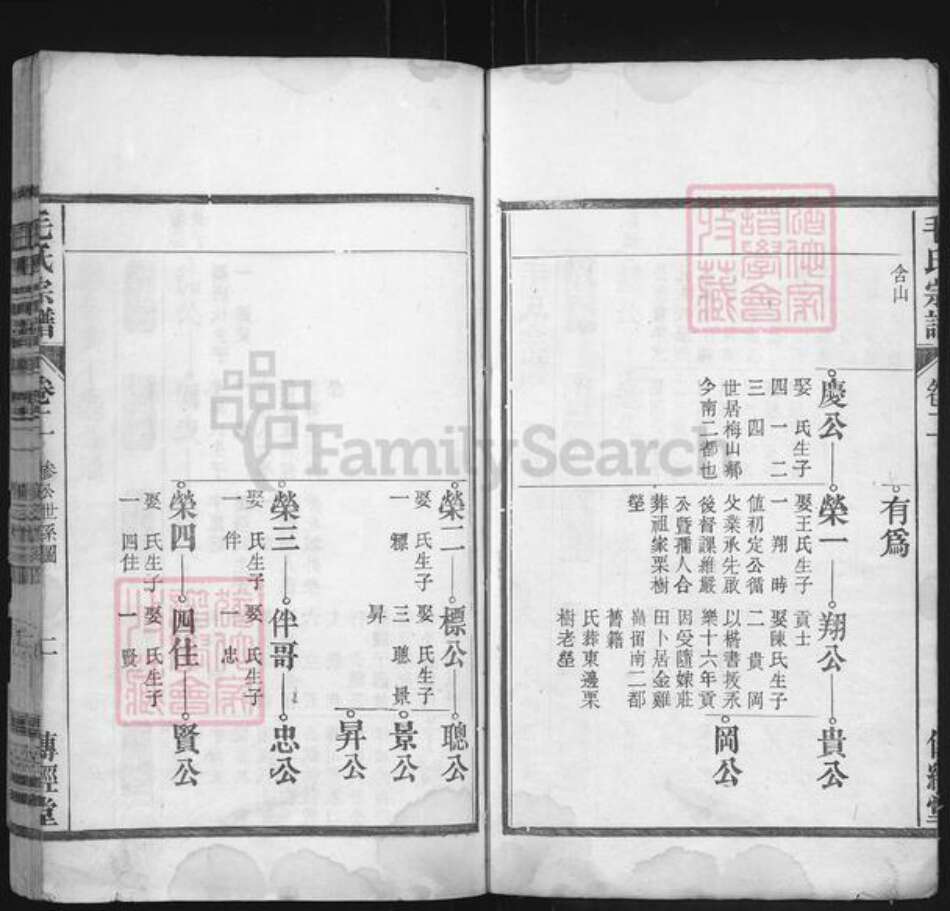 毛氏宗譜
卷二
含山
有爲
慶公
娶 氏生子
四 一 二
三 四
世居梅山鄰
今南二都也
榮一
娶王氏生子
一 翔 時
值初定公循
父業承先啟
後督課維嚴
公暨孺人合
葬祖家栗樹
塋
翔公
貢士
娶陳氏生子
二 貴 岡
以楷書授永
樂十六年貢
因受隨娘莊
田卜居金雞
崙留南二都
舊籍
氏葬東邊栗
樹老塋
貴公
岡公
榮二
娶 氏生子
一 標
標公
娶 氏生子
三 聰 景
昇
聰公
景公
昇公
榮三
娶 氏生子
一 伴
伴哥
娶 氏生子
一 忠
忠公
榮四
娶 氏生子
一 四住
四住
娶 氏生子
一 賢
賢公
毛氏宗譜
卷二
公世系圖
二
傳經堂
FamilySearch